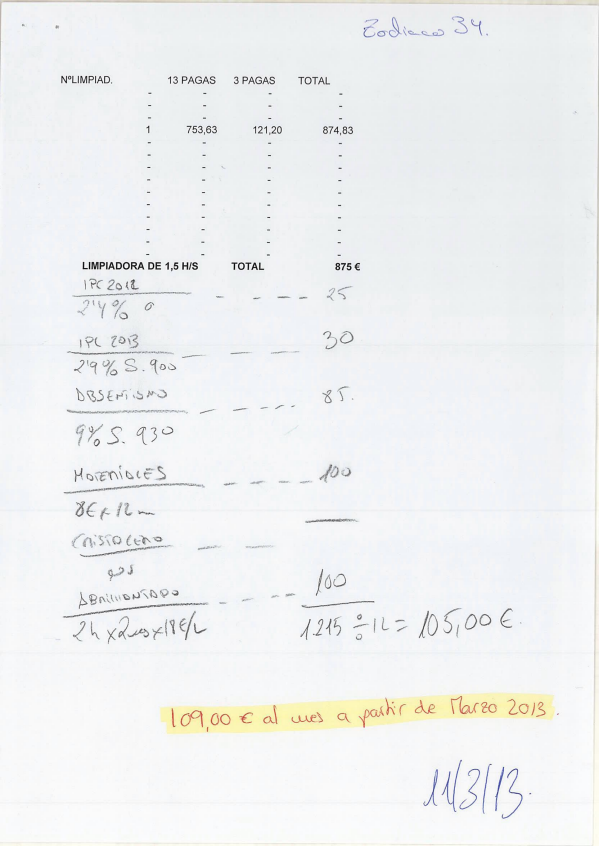 Zodiaco 34.
NºLIMPIAD. 13 PAGAS 3 PAGAS TOTAL
- - - -
- - - -
- - - -
1 753,63 121,20 874,83
- - - -
- - - -
- - - -
- - - -
- - - -
- - - -
- - - -
- - - -
- - - -
- - - -
LIMPIADORA DE 1,5 H/S TOTAL 875 €
IPC 2012 - - - -- 25
2'4%
IPC 2013 - - - 30
2'9% S. 900
ABSENTISMO - - - -- 85.
9% S. 930
MATERIALES - - - -- 100
8€ x 12 m
CRISTALERO - -
ABRILLANTADO - - - - 100
2h x 2 x 18€/h 1.215 ÷ 12 = 105,00 €.
109,00 € al mes a partir de Marzo 2013.
11/3/13.